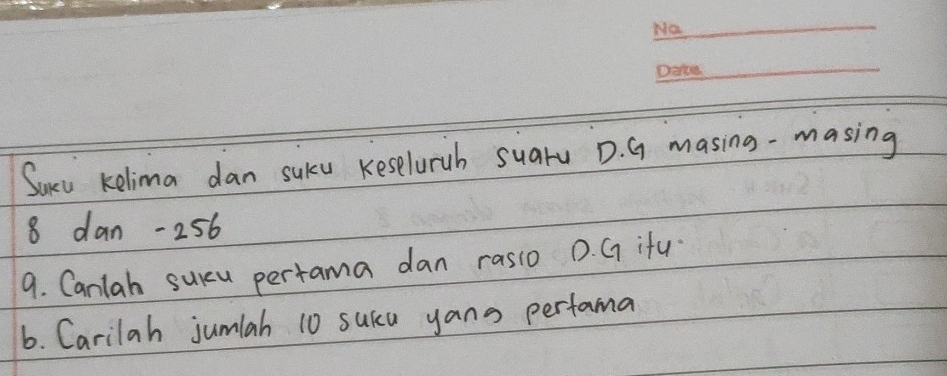 No
Date
Suku kelima dan suku keseluruh suatu D.G masing-masing
8 dan -256
a. Carilah suku pertama dan rasio D.G itu.
b. Carilah jumlah 10 suku yang pertama